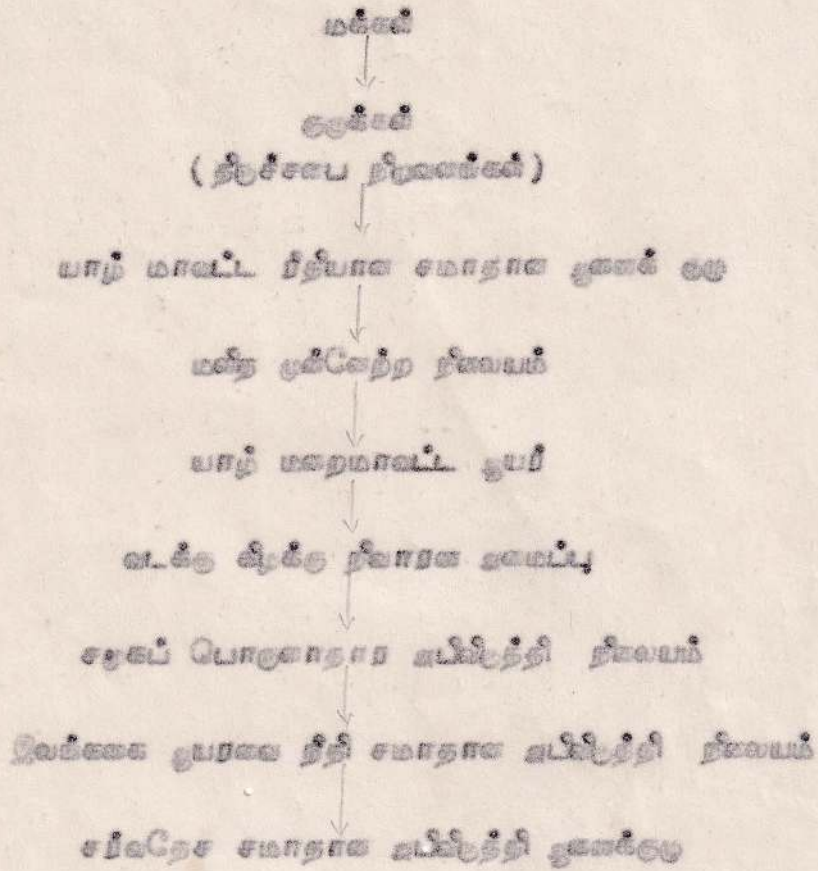 மக்கள்
குருக்கள்
(திருச்சபை நிறுவனங்கள்)
யாழ் மாவட்ட ரீதியான சமாதான ஆணைக் குழு
மனித முன்னேற்ற நிலையம்
யாழ் மறைமாவட்ட ஆயர்
வடக்கு கிழக்கு நிவாரண அமைப்பு
சமூகப் பொருளாதார அபிவிருத்தி நிலையம்
இலங்கை ஆயரவை நீதி சமாதான அபிவிருத்தி நிலையம்
சர்வதேச சமாதான அபிவிருத்தி ஆணைக்குழு